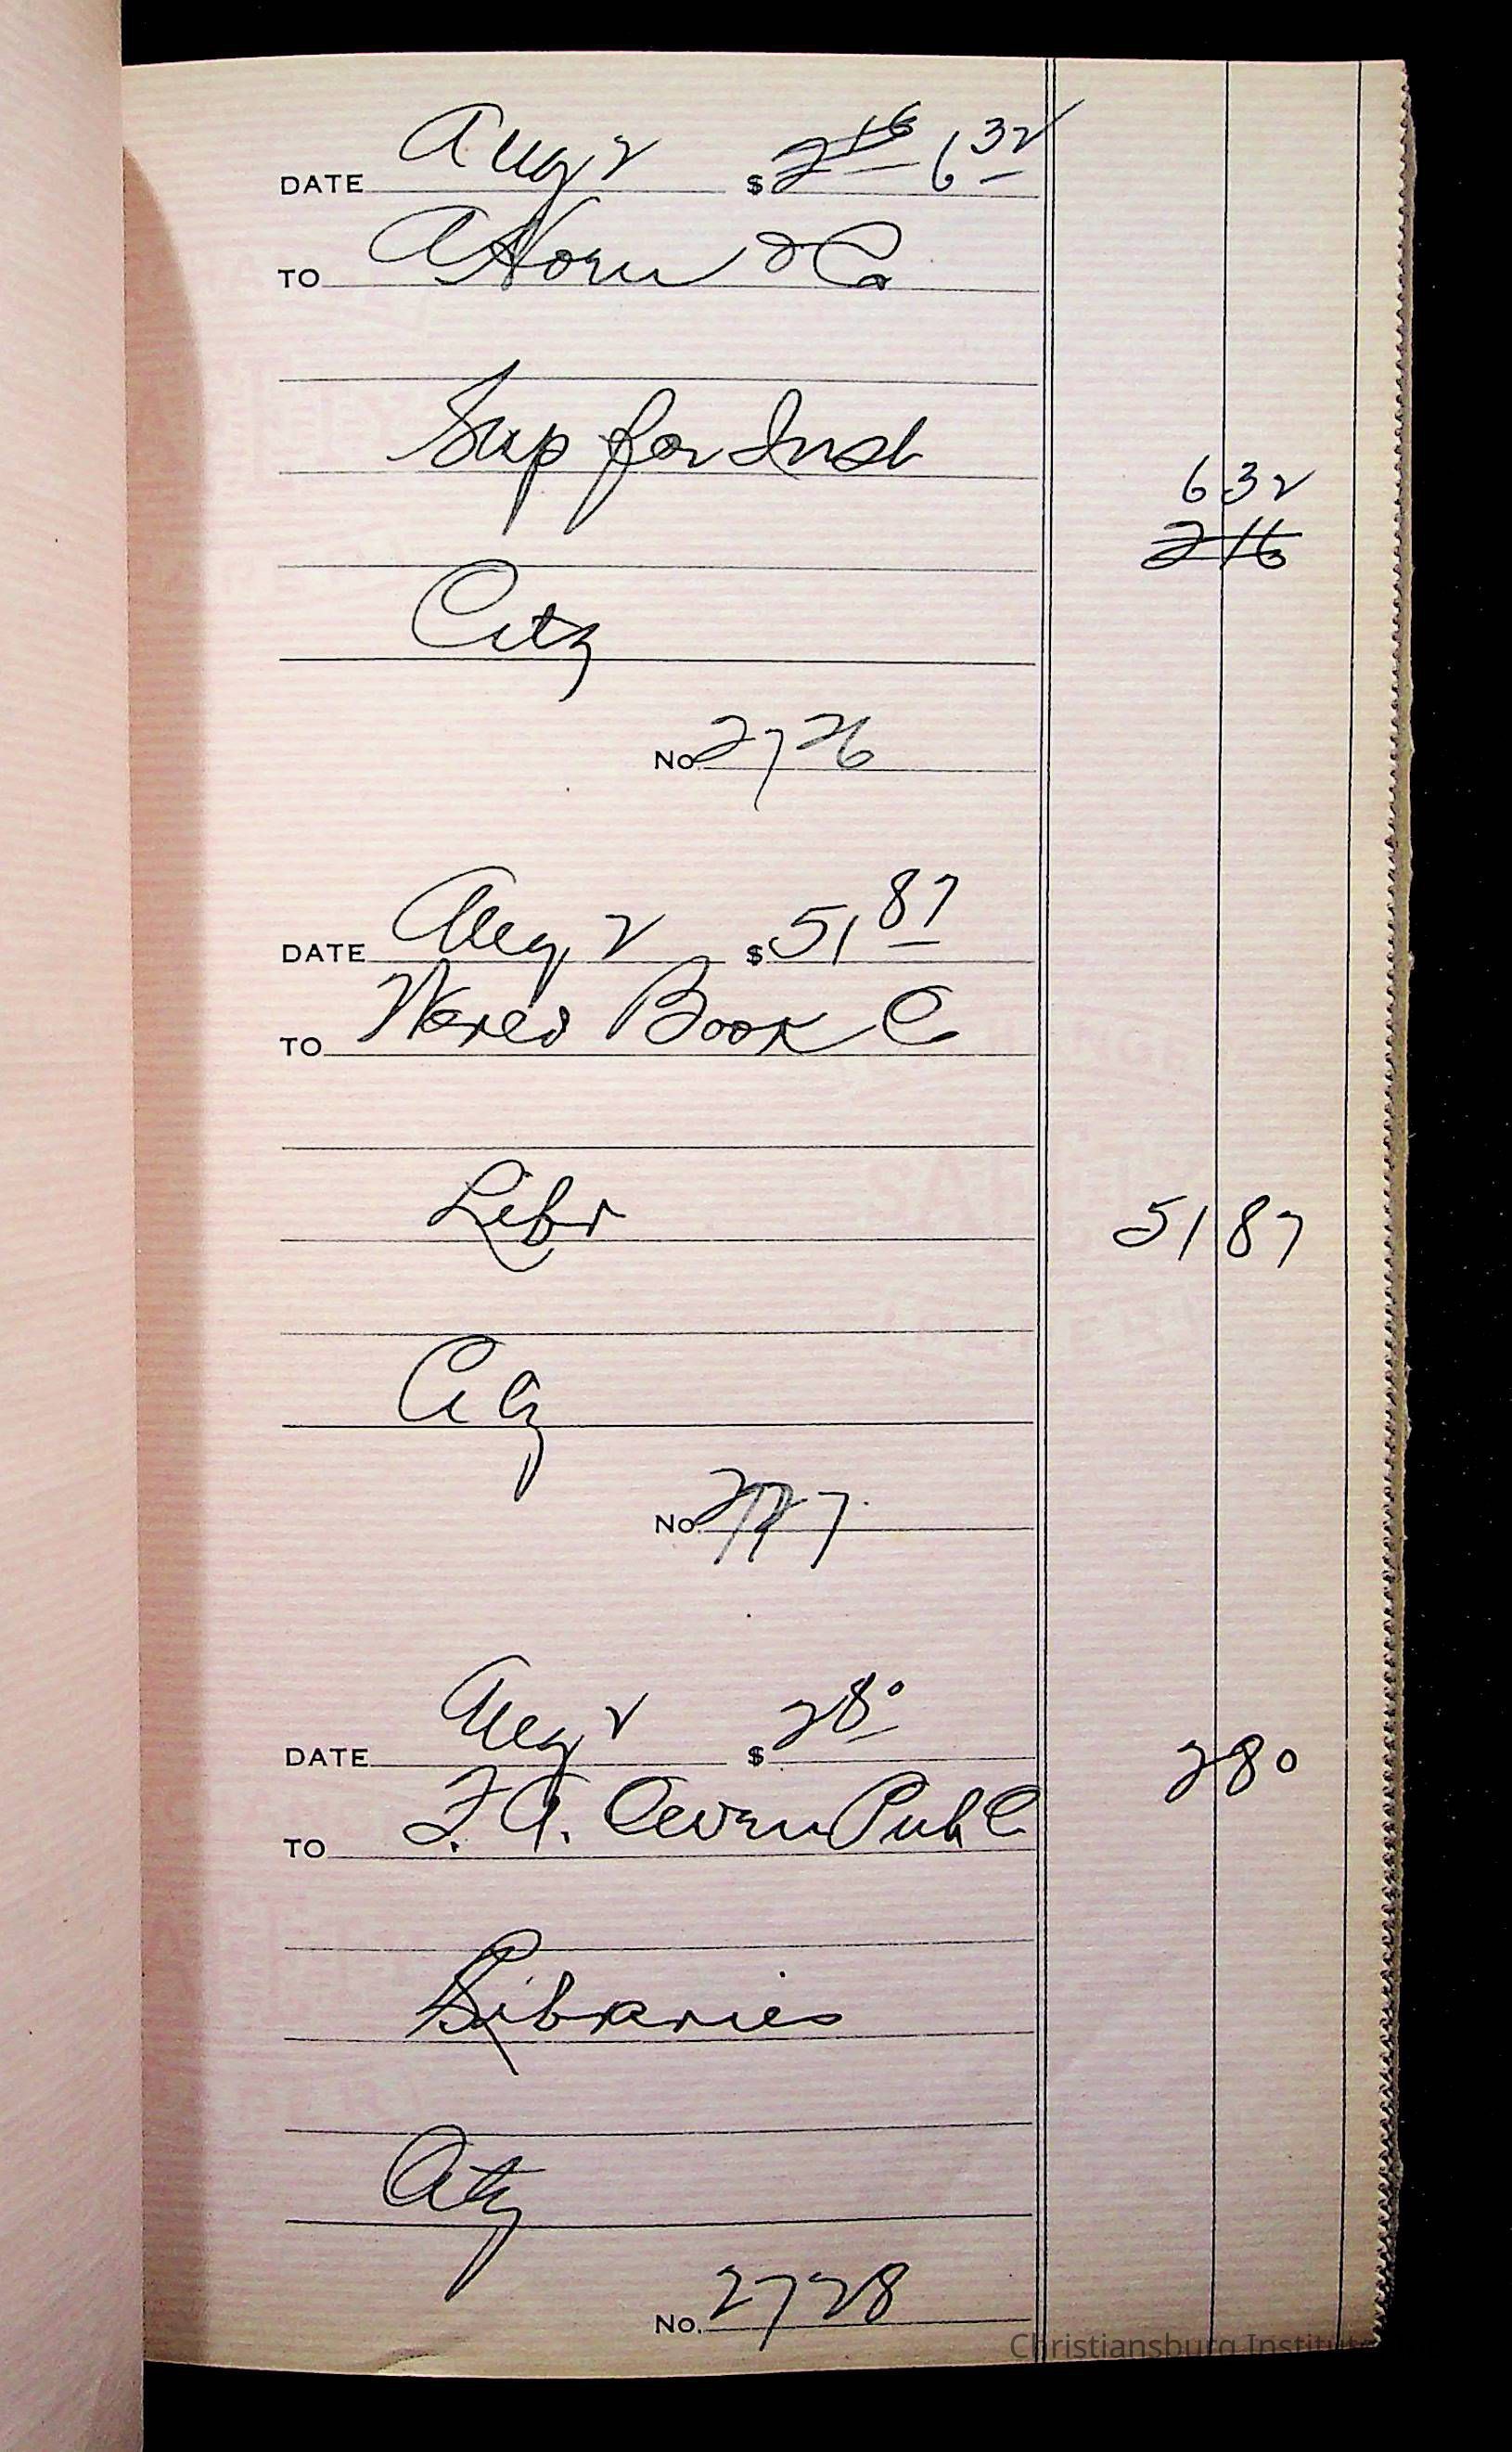 DATE Aug 2 $ 2 16 6 32
TO A Horn & Co
Sup for Inst
6 32
2 16
City
No 2726
DATE Aug 2 $ 51 87
TO World Book Co
Libr
51 87
City
No. 2727
DATE Aug 2 $ 2 80
2 80
TO F. A. Owen Publ C
Libraries
City
No. 2728
Christiansburg Institute